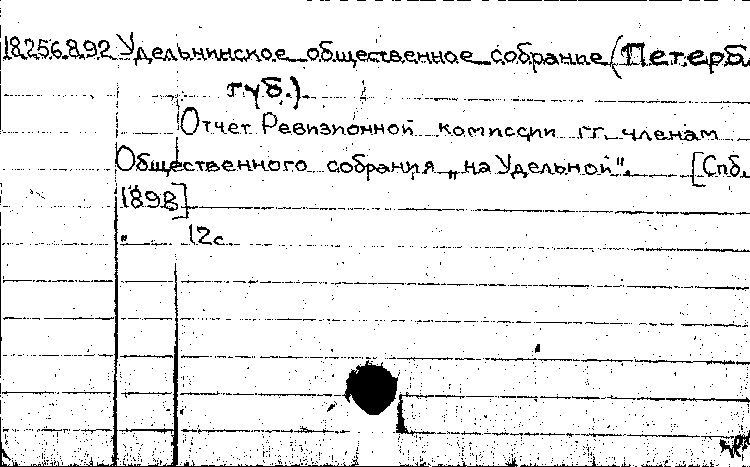 18.256.8.92 Удельнинское общественное собрание (Петерб.
губ.).
Отчет Ревизионной комиссии гг. членам
Общественного собрания „на Удельной". [Спб.
1898]
" 12с.